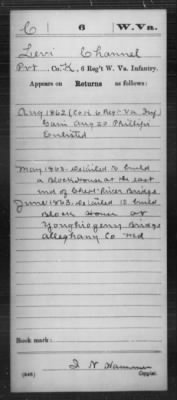 C | 6 | W. Va.
Levi Channel
Pvt Co. K, 6 Reg't W. Va. Infantry.
Appears on Returns as follows:
Aug 1862 (Co K 6 Reg. Va Inf)
Gain Aug 20 Phillipi
Enlisted
May 1863. Detailed to build
a Block House at the east
end of Cheat River Bridge
June 1863. Detailed to build
Block House at
Yonghiogeny Bridge
Alleghany Co Md
Book mark:
(546)
J N Hammer
Copyist.